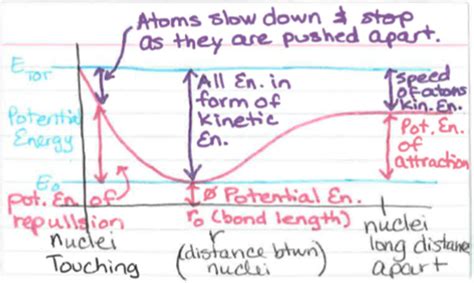 Atoms slow down & stop
as they are pushed apart.
E TOT
All En. in
form of
Kinetic
En.
speed
of atoms
kin. En.
Potential
Energy
Pot. En.
of
attraction
E₀
pot. En. of
repullsion
Ø Potential En.
r₀ (bond length)
nuclei
Touching
(distance btwn
nuclei)
nuclei
long distane
apart